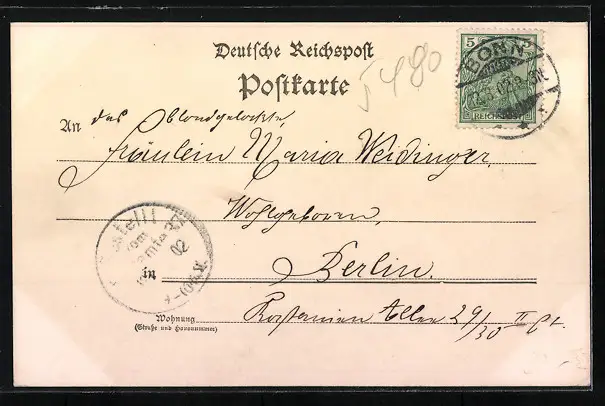 Deutsche Reichspost
Postkarte
5
5
REICHSPOST
BONN
5480
An das blondgelockte
Fräulein Maria Weidinger,
Wohlgeboren,
in Berlin.
02
Wohnung
(Straße und Hausnummer)
Kastanien Allee 29/30 II